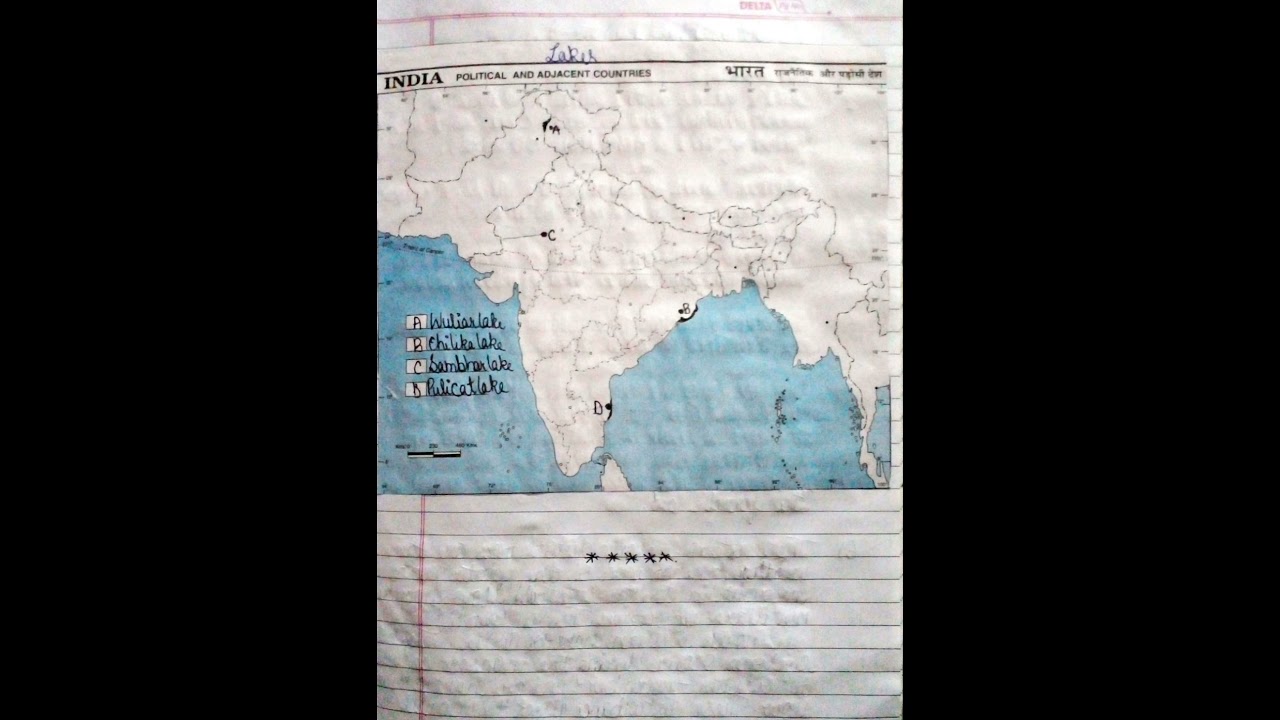 DELTA
Lakes
INDIA POLITICAL AND ADJACENT COUNTRIES भारत राजनैतिक और पड़ोसी देश
A
C
B
A Wuliar lake
B Chilika lake
C Sambhar lake
D Pulicat lake
D
*****